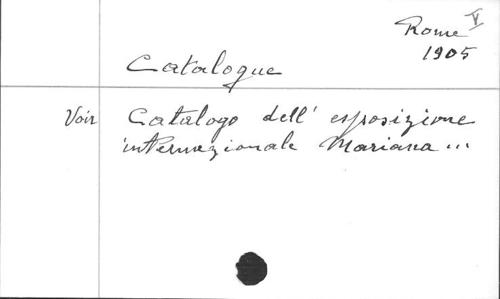 Rome V
1905
Catalogue
Voir Catalogo dell' esposizione
internazionale Mariana ...